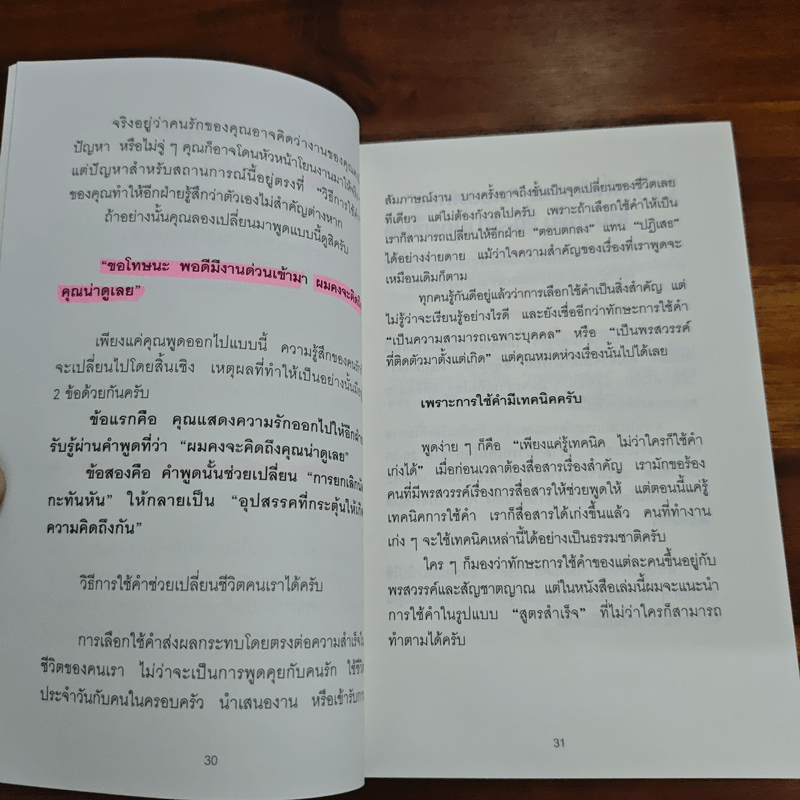 จริงอยู่ว่าคนรักของคุณอาจคิดว่างานของคุณ
ปัญหา หรือไม่จู่ ๆ คุณก็อาจโดนหัวหน้าโยนงานมาให้
แต่ปัญหาสำหรับสถานการณ์นี้อยู่ตรงที่ “วิธีการใช้
ของคุณทำให้อีกฝ่ายรู้สึกว่าตัวเองไม่สำคัญต่างหาก
ถ้าอย่างนั้นคุณลองเปลี่ยนมาพูดแบบนี้ดูสิครับ
“ขอโทษนะ พอดีมีงานด่วนเข้ามา ผมคงจะคิดถึง
คุณน่าดูเลย”
เพียงแค่คุณพูดออกไปแบบนี้ ความรู้สึกของคน
จะเปลี่ยนไปโดยสิ้นเชิง เหตุผลที่ทำให้เป็นอย่างนั้น
2 ข้อด้วยกันครับ
ข้อแรกคือ คุณแสดงความรักออกไปให้อีกฝ่าย
รับรู้ผ่านคำพูดที่ว่า “ผมคงจะคิดถึงคุณน่าดูเลย”
ข้อสองคือ คำพูดนั้นช่วยเปลี่ยน “การยกเลิกนัด
กะทันหัน” ให้กลายเป็น “อุปสรรคที่กระตุ้นให้เกิด
ความคิดถึงกัน”
วิธีการใช้คำช่วยเปลี่ยนชีวิตคนเราได้ครับ
การเลือกใช้คำส่งผลกระทบโดยตรงต่อความสำเร็จใน
ชีวิตของคนเรา ไม่ว่าจะเป็นการพูดคุยกับคนรัก ใช้ชีวิต
ประจำวันกับคนในครอบครัว นำเสนองาน หรือเข้ารับการ
30
สัมภาษณ์งาน บางครั้งอาจถึงขั้นเป็นจุดเปลี่ยนของชีวิตเลย
ทีเดียว แต่ไม่ต้องกังวลไปครับ เพราะถ้าเลือกใช้คำให้เป็น
เราก็สามารถเปลี่ยนให้อีกฝ่าย “ตอบตกลง” แทน “ปฏิเสธ”
ได้อย่างง่ายดาย แม้ว่าใจความสำคัญของเรื่องที่เราพูดจะ
เหมือนเดิมก็ตาม
ทุกคนรู้กันดีอยู่แล้วว่าการเลือกใช้คำเป็นสิ่งสำคัญ แต่
ไม่รู้ว่าจะเรียนรู้อย่างไรดี และยังเชื่ออีกว่าทักษะการใช้คำ
“เป็นความสามารถเฉพาะบุคคล” หรือ “เป็นพรสวรรค์
ที่ติดตัวมาตั้งแต่เกิด” แต่คุณหมดห่วงเรื่องนั้นไปได้เลย
เพราะการใช้คำมีเทคนิคครับ
พูดง่าย ๆ ก็คือ “เพียงแค่รู้เทคนิค ไม่ว่าใครก็ใช้คำ
เก่งได้” เมื่อก่อนเวลาต้องสื่อสารเรื่องสำคัญ เรามักขอร้อง
คนที่มีพรสวรรค์เรื่องการสื่อสารให้ช่วยพูดให้ แต่ตอนนี้แค่รู้
เทคนิคการใช้คำ เราก็สื่อสารได้เก่งขึ้นแล้ว คนที่ทำงาน
เก่ง ๆ จะใช้เทคนิคเหล่านี้ได้อย่างเป็นธรรมชาติครับ
ใคร ๆ ก็มองว่าทักษะการใช้คำของแต่ละคนขึ้นอยู่กับ
พรสวรรค์และสัญชาตญาณ แต่ในหนังสือเล่มนี้ผมจะแนะนำ
การใช้คำในรูปแบบ “สูตรสำเร็จ” ที่ไม่ว่าใครก็สามารถ
ทำตามได้ครับ
31